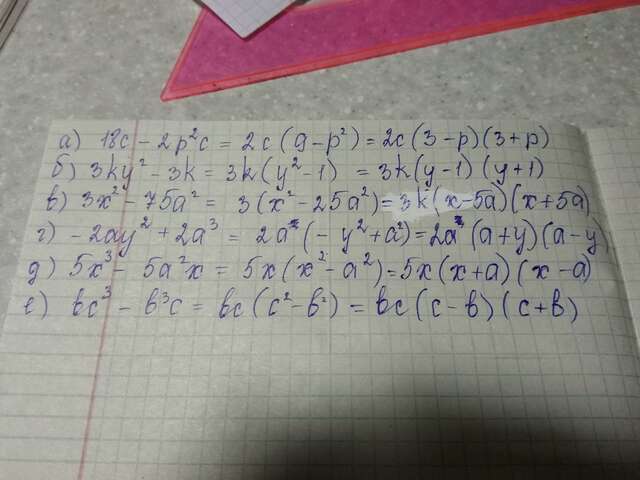 а) 18c - 2p²c = 2c(9-p²) = 2c(3-p)(3+p)
б) 3ky² - 3k = 3k(y²-1) = 3k(y-1)(y+1)
в) 3x² - 75a² = 3(x² - 25a²) = 3k(x-5a)(x+5a)
г) -2ay² + 2a³ = 2a(-y²+a²) = 2a(a+y)(a-y
д) 5x³ - 5a²x = 5x(x²-a²) = 5x(x+a)(x-a)
е) bc³ - b³c = bc(c²-b²) = bc(c-b)(c+b)